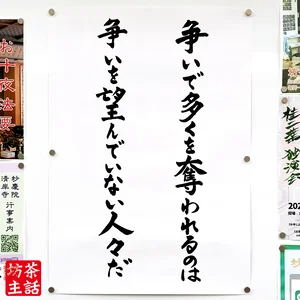 争いで多くを奪われるのは
争いを望んでいない人々だ
お十夜法要
妙慶院
清岸寺
行事案内
坊主
茶話